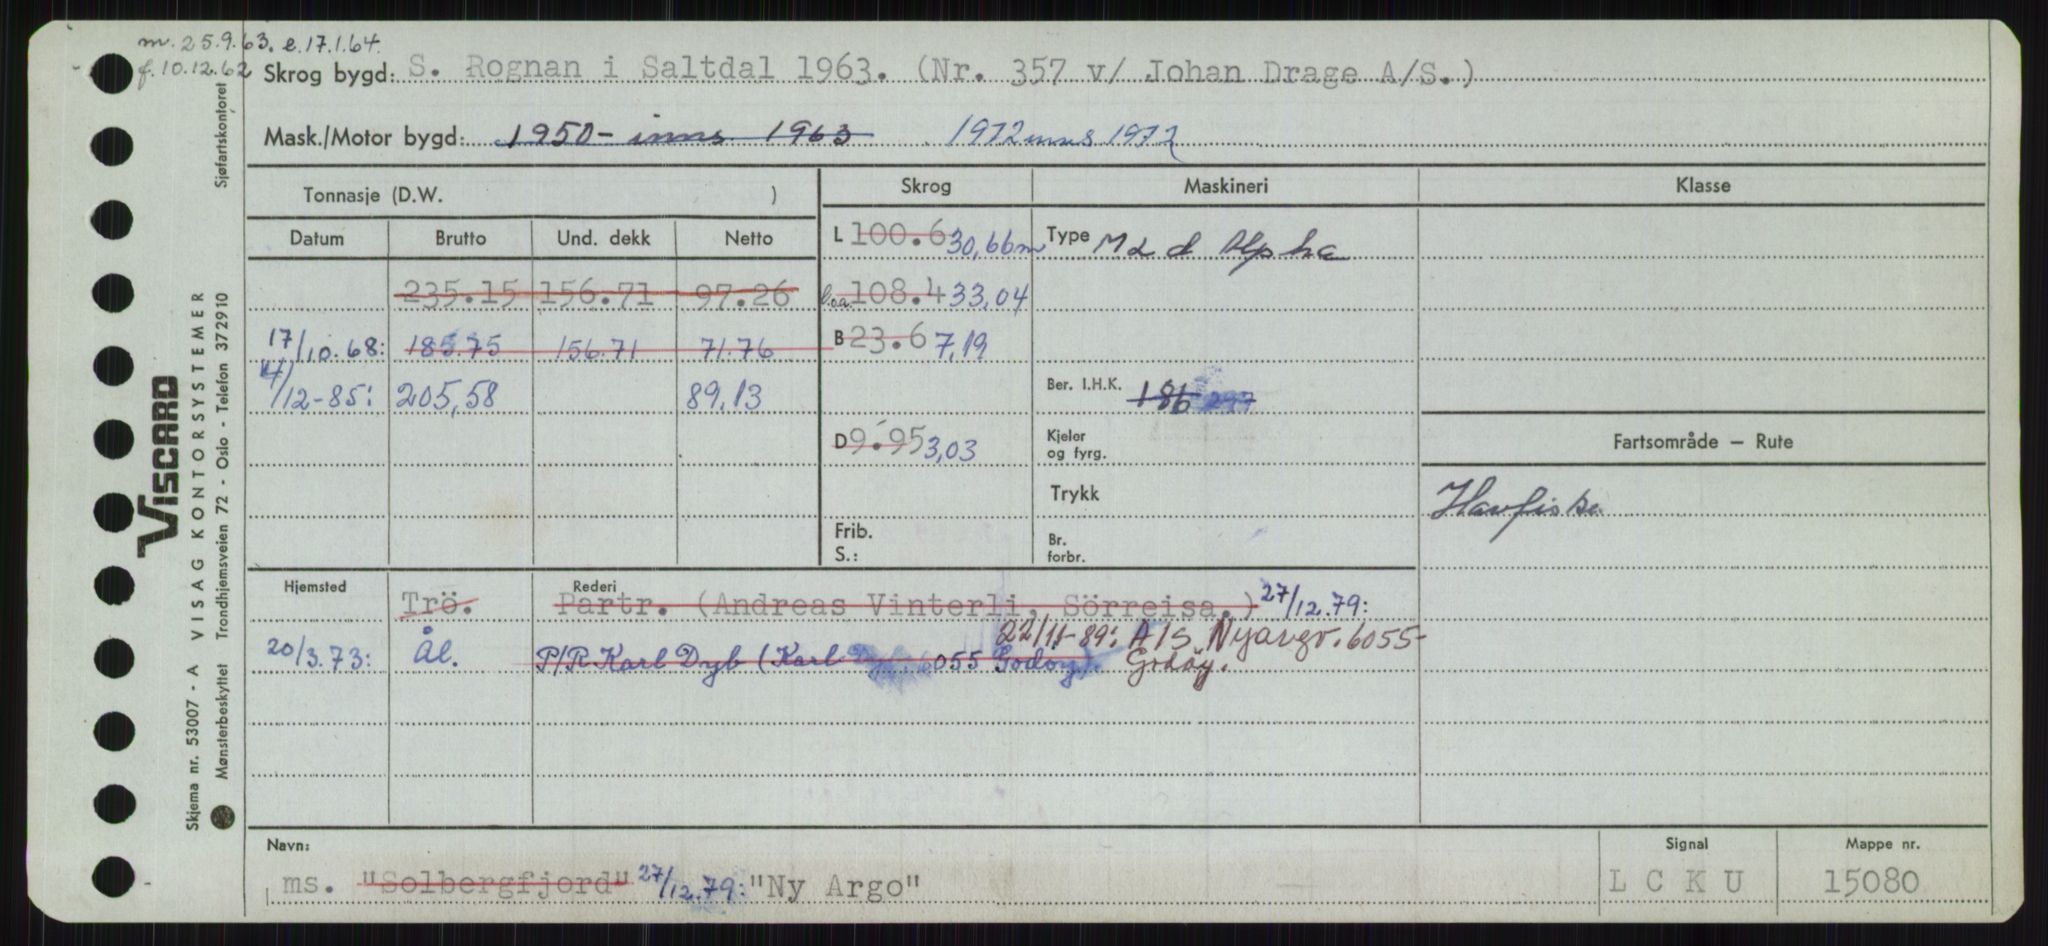 m. 25.9.63. e.17.1.64.
f. 10.12.62
Skrog bygd: S. Rognan i Saltdal 1963. (Nr. 357 v/ Johan Drage A/S.)
Mask./Motor bygd: 1950- inns 1963 1972 inns 1972
Tonnasje (D.W. )
Skrog Maskineri Klasse
Datum Brutto Und. dekk Netto
L 100.6 30,66m Type M 2 d Alpha
235.15 156.71 97.26 l.o.a. 108.4 33,04
17/10.68: 185.75 156.71 71.76 B 23.6 7,19
4/12-85: 205,58 89,13
Ber. I.H.K. 186 297
D 9.95 3,03
Kjeler og fyrg.
Fartsområde – Rute
Trykk
Havfiske
Frib. S.:
Br. forbr.
Hjemsted Rederi
Trö. Partr. (Andreas Vinterli, Sörreisa.) 27/12.79:
22/11-89: A/S Nyargo. 6055
20/3.73: Ål. P/R Karl Dyb (Karl 6055 Godøy). Godøy.
Navn: Signal Mappe nr.
ms. "Solbergfjord" 27/12.79: "Ny Argo" L C K U 15080
VISCARD
Skjema nr. 53007 - A VISAG KONTORSYSTEMER
Mønsterbeskyttet Trondhjemsveien 72 - Oslo - Telefon 372910 Sjøfartskontoret